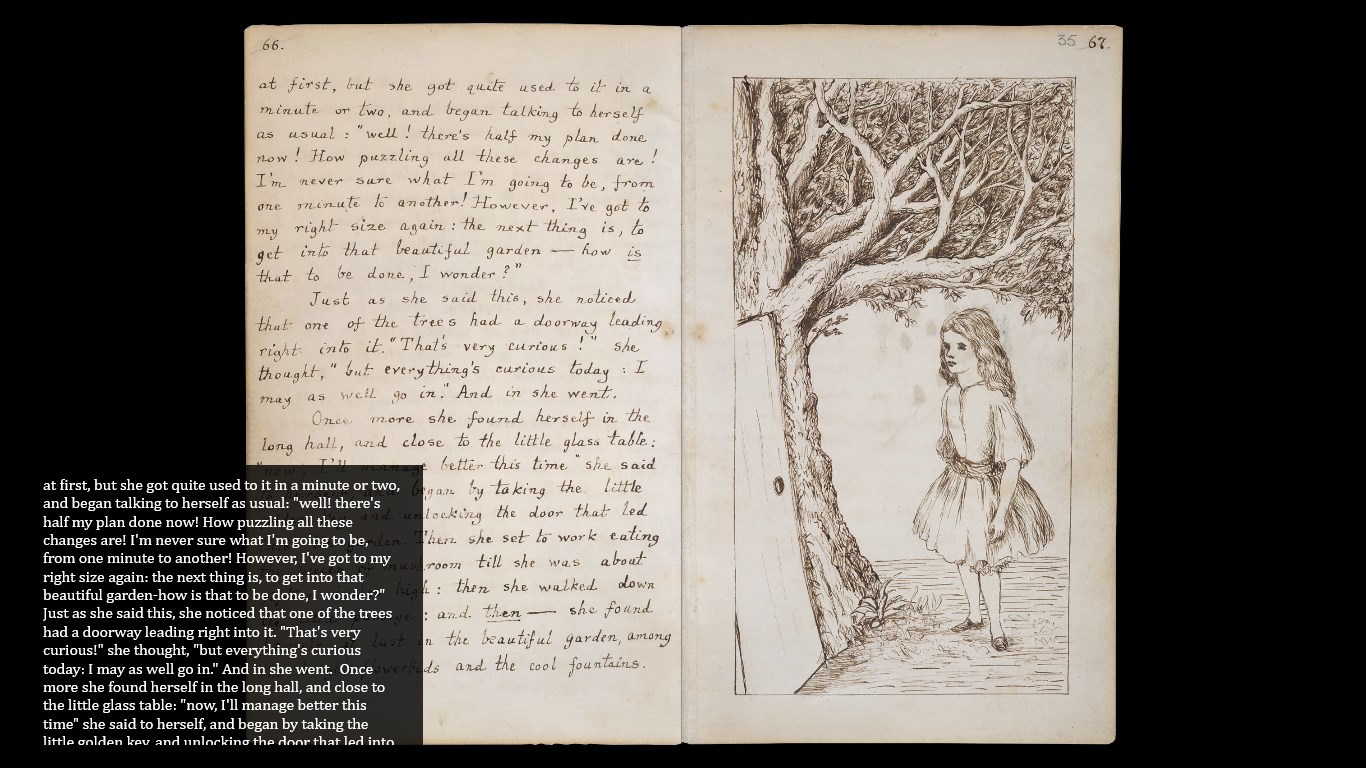 66.
at first, but she got quite used to it in a
minute or two, and began talking to herself
as usual: "well! there's half my plan done
now! How puzzling all these changes are!
I'm never sure what I'm going to be, from
one minute to another! However, I've got to
my right size again: the next thing is, to
get into that beautiful garden — how is
that to be done, I wonder?"
Just as she said this, she noticed
that one of the trees had a doorway leading
right into it. "That's very curious!" she
thought, "but everything's curious today: I
may as well go in." And in she went.
Once more she found herself in the
long hall, and close to the little glass table:
"now, I'll manage better this time" she said
began by taking the little
and unlocking the door that led
Then she set to work eating
mushroom till she was about
high: then she walked down
: and then — she found
last in the beautiful garden, among
flowerbeds and the cool fountains.
35 67.
at first, but she got quite used to it in a minute or two,
and began talking to herself as usual: "well! there's
half my plan done now! How puzzling all these
changes are! I'm never sure what I'm going to be,
from one minute to another! However, I've got to my
right size again: the next thing is, to get into that
beautiful garden-how is that to be done, I wonder?"
Just as she said this, she noticed that one of the trees
had a doorway leading right into it. "That's very
curious!" she thought, "but everything's curious
today: I may as well go in." And in she went. Once
more she found herself in the long hall, and close to
the little glass table: "now, I'll manage better this
time" she said to herself, and began by taking the
little golden key, and unlocking the door that led into